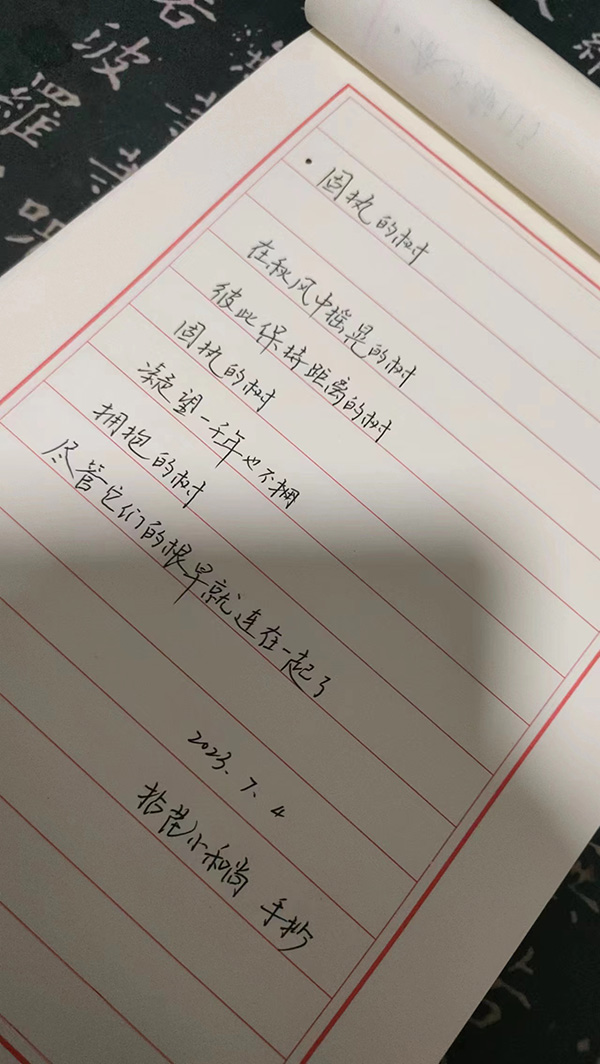 · 固执的树
在秋风中摇晃的树
彼此保持距离的树
固执的树
凝望一千年也不拥
拥抱的树
尽管它们的根早就连在一起了
2023.7.4
拈花小和尚 手抄
波
羅